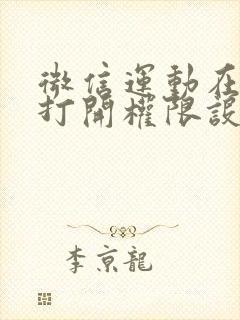 微信運動在
打開權限設
李京龍